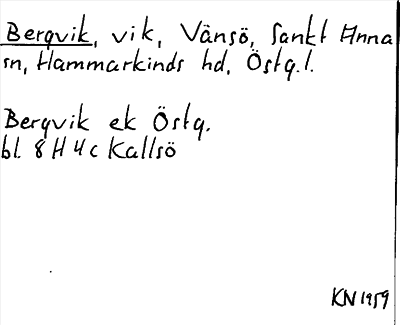 Bergvik, vik, Vänsö, Sankt Anna
sn, Hammarkinds hd, Östg.l.
Bergvik ek Östg.
bl. 8 H 4 c Kallsö
KN 1959